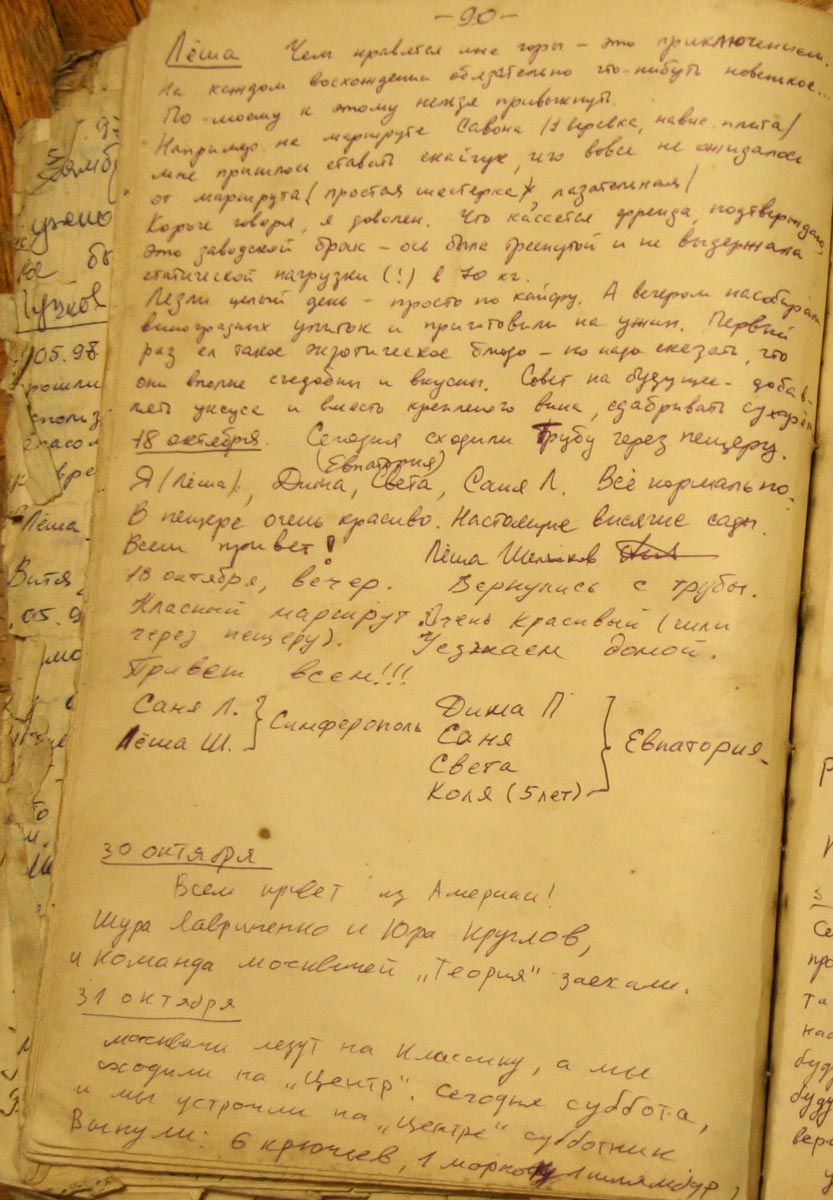 -90-
Лёша Чем нравятся мне горы - это приключением.
На каждом восхождении обязательно что-нибуть новенькое...
По-моему к этому нельзя привыкнуть.
Например на маршруте Савона (1 веревка, навис. плита)
мне пришлось ставить скайхук, чего вовсе не ожидалось
от маршрута (простая шестерка, лазательная)
Короче говоря, я доволен. Что кассается френда, подтверждаю,
это заводской брак - ось была треснутой и не выдержала
статической нагрузки (!) в 70 кг.
Лезли целый день - просто по кайфу. А вечером насобирали
виноградных улиток и приготовили на ужин. Первый
раз ел такое экзотическое блюдо - но надо сказать, что
они вполне съедобны и вкусны. Совет на будущее - добав-
лять уксуса и вместо крепленого вина, сдабривать сухарём
18 октября. Сегодня сходили Трубу через пещеру.
(Евпатория)
Я (Лёша), Дима, Света, Саня Л. Всё нормально.
В пещере очень красиво. Настоящие висячие сады.
Всем привет! Лёша
18 октября, вечер. Вернулись с трубы.
Класный маршрут. Очень красивый (шли
через пещеру). Уезжаем домой.
Привет всем!!!
Саня Л. Лёша Ш. } Симферополь
Дима П Саня Света Коля (5 лет) } Евпатория
30 октября
Всем привет из Америки!
Шура Лавриченко и Юра Круглов,
и команда москвичей „Теория" заехали.
31 октября
москвичи лезут на Классику, а мы
сходили на „Центр". Сегодня суббота,
и мы устроили на „Центре" субботник
Вынули: 6 крючьев, 1 шлямбур,